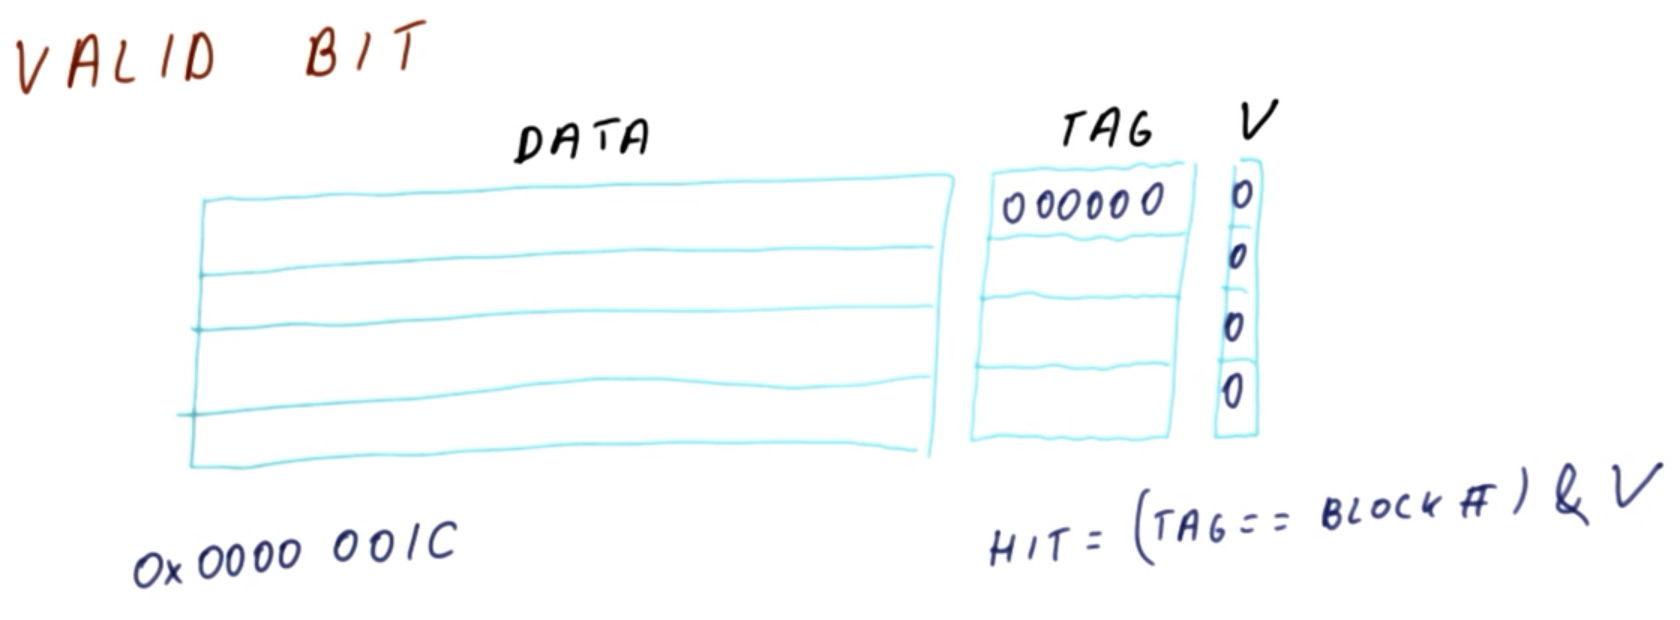 VALID BIT
DATA TAG V
000000 0
0
0
0
0x0000 001C
HIT = (TAG == BLOCK #) & V